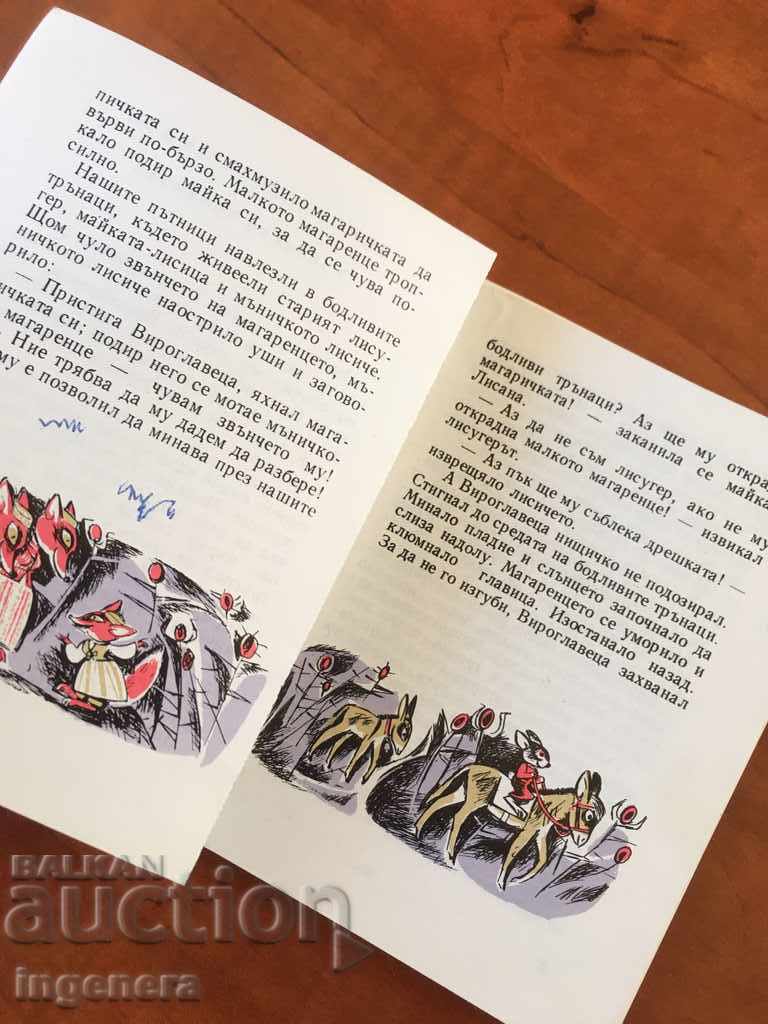 пичката си и смахмузило магаричката да
върви по-бързо. Малкото магаренце троп-
кало подир майка си, за да се чува по-
силно.
Нашите пътници навлезли в бодливите
трънаци, където живеели старият лису-
гер, майката-лисица и мъничкото лисиче.
Щом чуло звънчето на магаренцето, мъ-
ничкото лисиче наострило уши и загово-
рило:
— Пристига Вироглавеца, яхнал мага-
ричката си; подир него се мотае мъничко-
магаренце — чувам звънчето му!
Ние трябва да му дадем да разбере!
му е позволил да минава през нашите
бодливи трънаци? Аз ще му откра
магаричката! — заканила се майка
Лисана.
— Аз да не съм лисугер, ако не му
открадна малкото магаренце! — извикал
лисугерът.
— Аз пък ще му съблека дрешката! —
изврещяло лисичето.
А Вироглавеца нищичко не подозирал.
Стигнал до средата на бодливите трънаци.
Минало пладне и слънцето започнало да
слиза надолу. Магаренцето се уморило и
клюмнало главица. Изостанало назад.
За да не го изгуби, Вироглавеца захванал
BALKAN
auction
ingenera